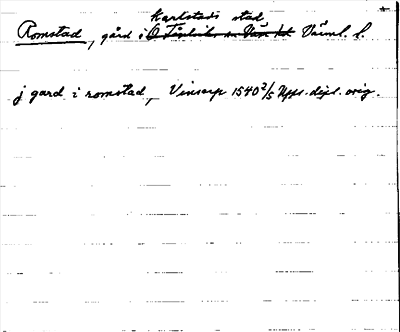 Karlstads stad
Romstad, gård i Värml. l.
j gard i romstad, Vinsarp 1540 2/5 Upps. dipl. orig.